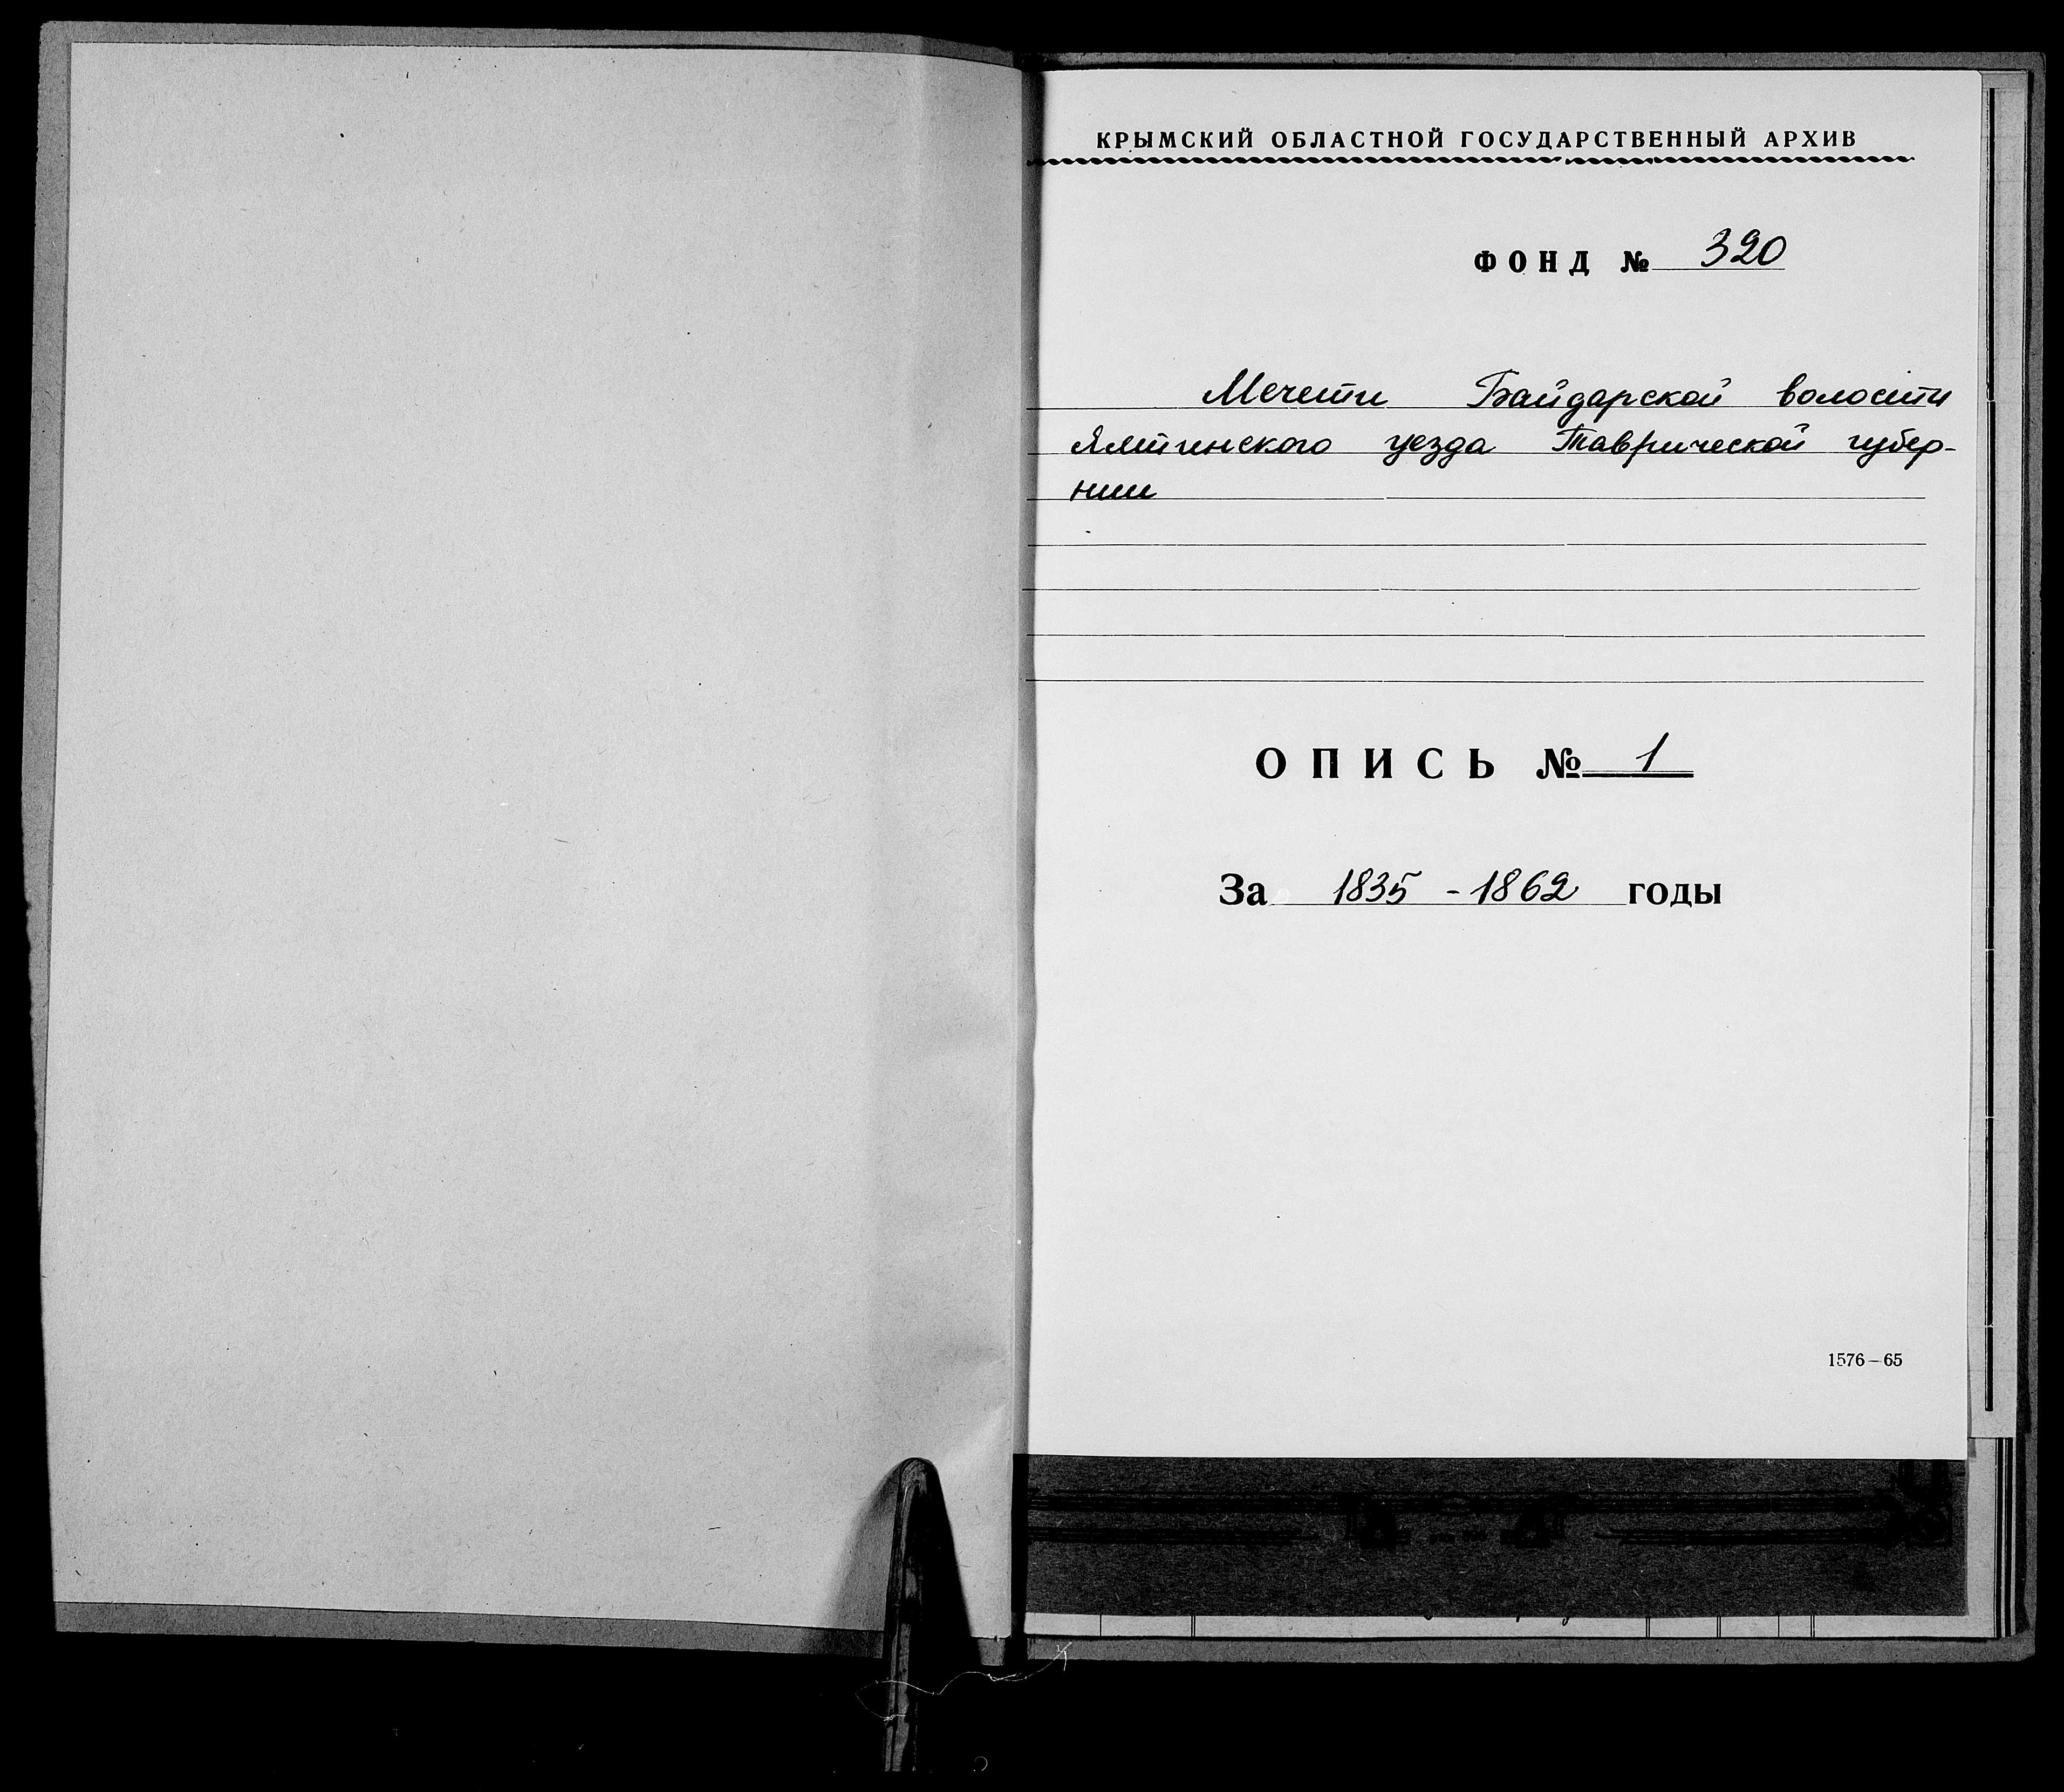 КРЫМСКИЙ ОБЛАСТНОЙ ГОСУДАРСТВЕННЫЙ АРХИВ
ФОНД № 320
Мечети Байдарской волости
Ялтинского уезда Таврической губер-
нии
ОПИСЬ № 1
За 1835 - 1862 годы
1576—65